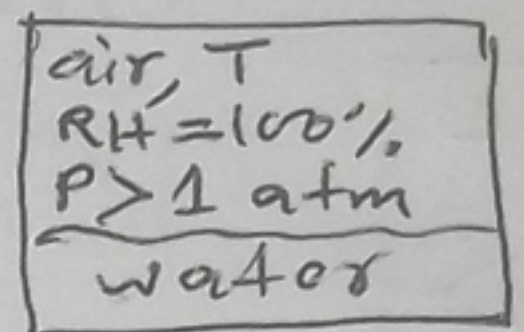 air, T
RH = 100%
P > 1 atm
water